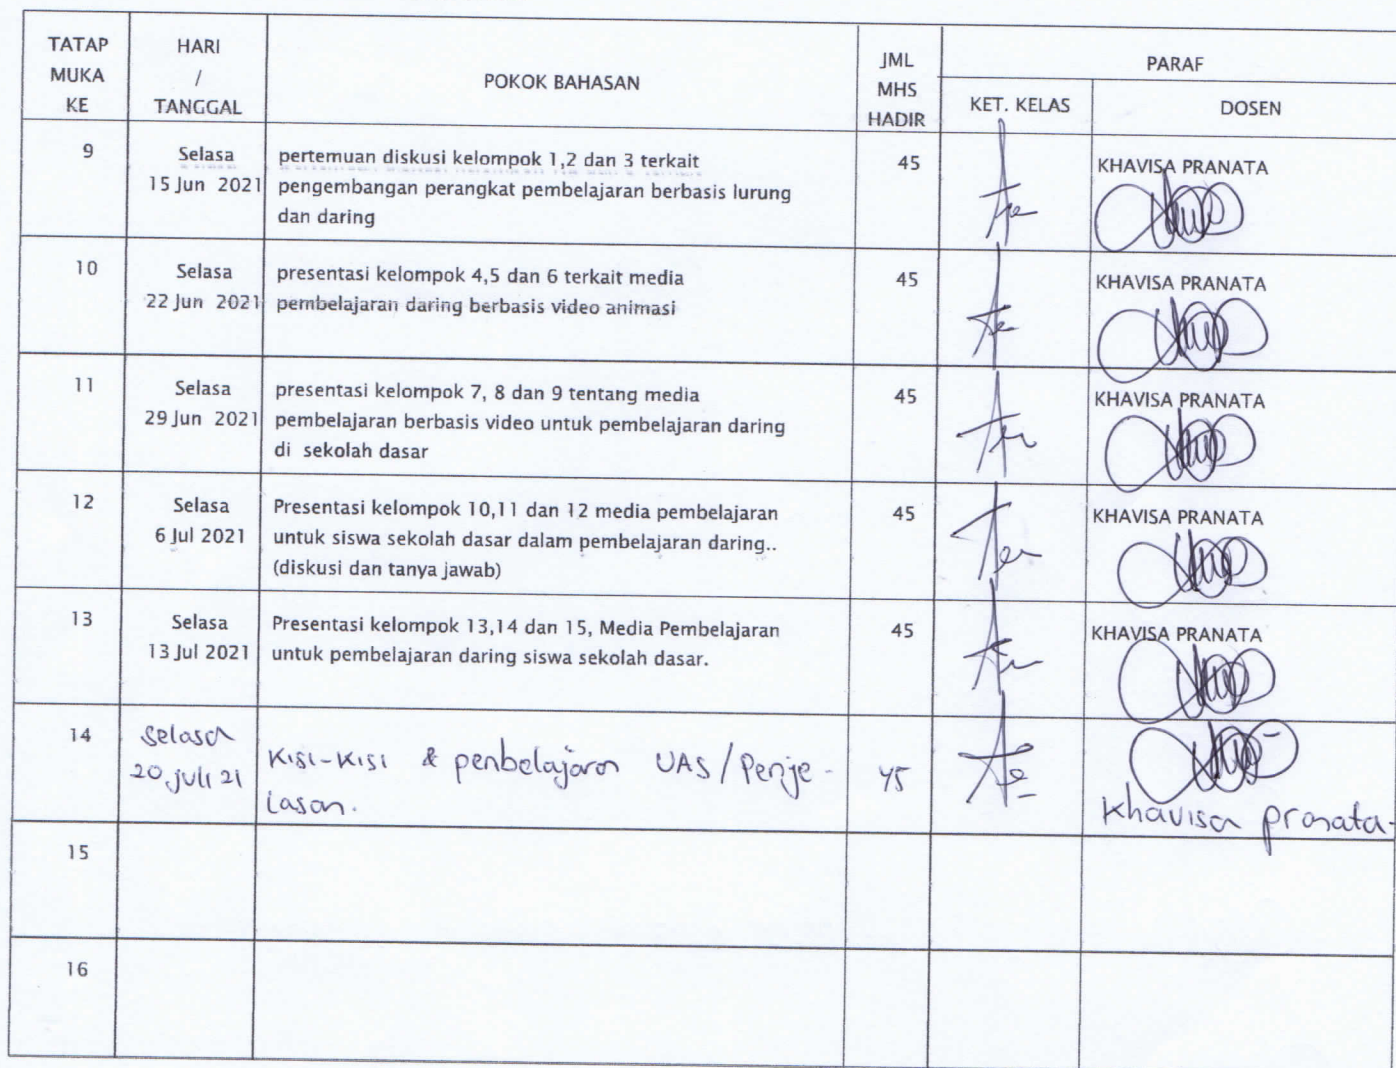 TATAP MUKA KE
HARI / TANGGAL
POKOK BAHASAN
JML MHS HADIR
PARAF
KET. KELAS
DOSEN
9
Selasa
15 Jun 2021
pertemuan diskusi kelompok 1,2 dan 3 terkait
pengembangan perangkat pembelajaran berbasis lurung
dan daring
45
KHAVISA PRANATA
10
Selasa
22 Jun 2021
presentasi kelompok 4,5 dan 6 terkait media
pembelajaran daring berbasis video animasi
45
KHAVISA PRANATA
11
Selasa
29 Jun 2021
presentasi kelompok 7, 8 dan 9 tentang media
pembelajaran berbasis video untuk pembelajaran daring
di sekolah dasar
45
KHAVISA PRANATA
12
Selasa
6 Jul 2021
Presentasi kelompok 10,11 dan 12 media pembelajaran
untuk siswa sekolah dasar dalam pembelajaran daring..
(diskusi dan tanya jawab)
45
KHAVISA PRANATA
13
Selasa
13 Jul 2021
Presentasi kelompok 13,14 dan 15, Media Pembelajaran
untuk pembelajaran daring siswa sekolah dasar.
45
KHAVISA PRANATA
14
Selasa
20 Juli 21
Kisi-Kisi & penbelajaran UAS/Penje-
lasan.
45
Khavisa pranata-
15
16